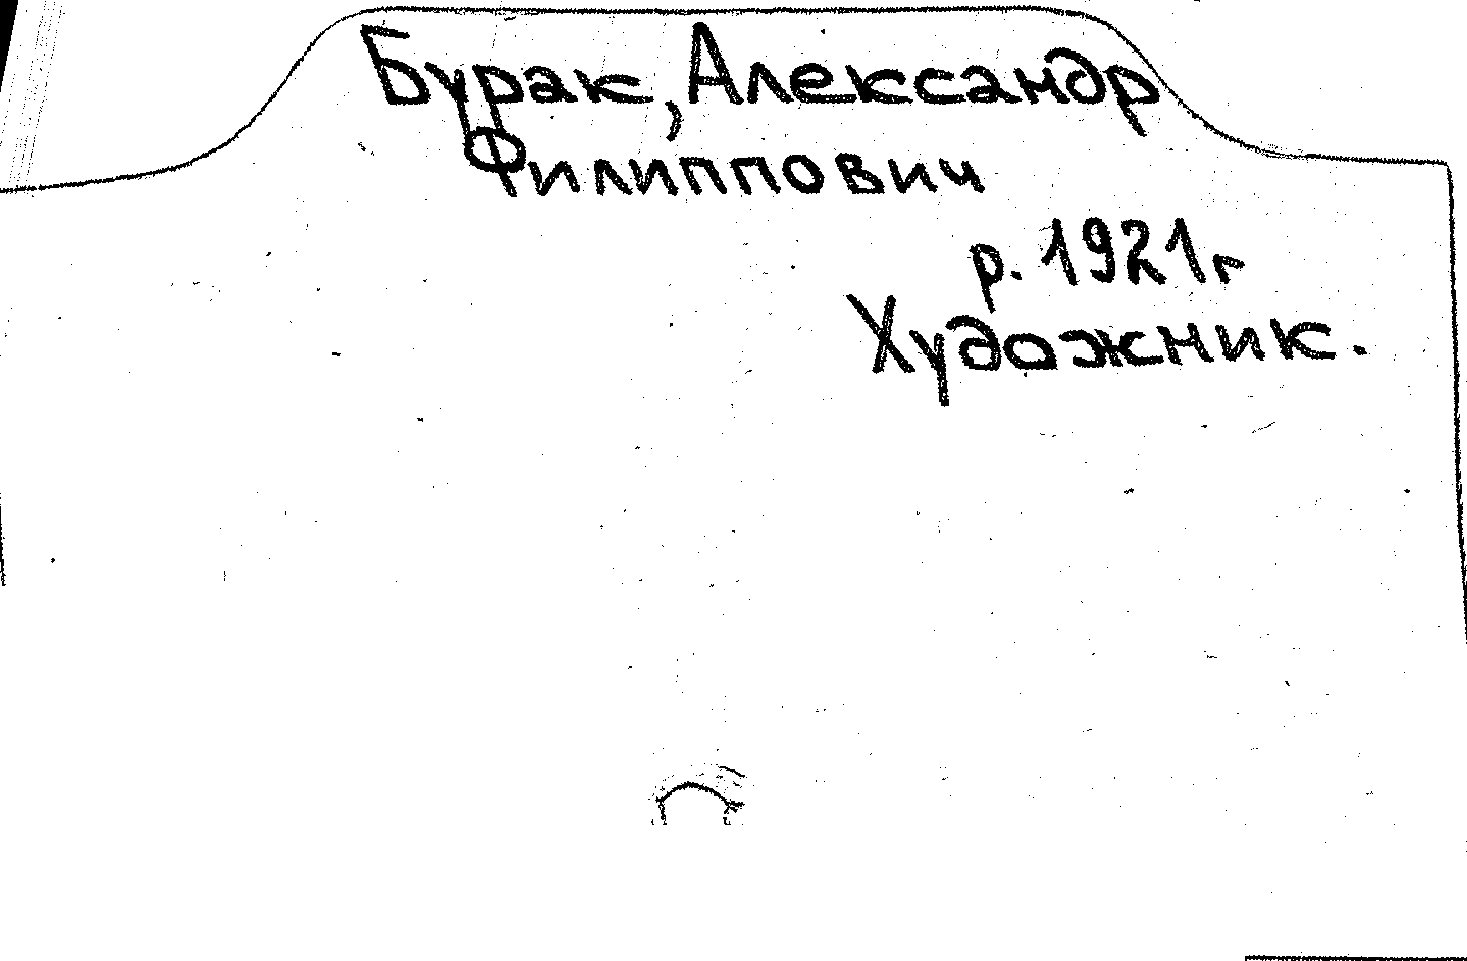 Бурак, Александр
Филиппович
р. 1921 г
Художник.